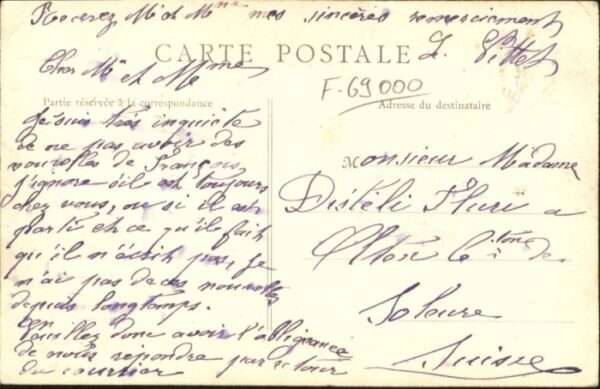 Recevez Mr et Mme mes sincères remerciement
J. Vittet
CARTE POSTALE
Cher Mr et Mme
F-69000
Partie réservée à la correspondance
Adresse du destinataire
Je suis très inquiète
de ne pas avoir des
nouvelles de François
j'ignore s'il est toujours
chez vous, ou si il est
parti et ce qu'il fait
qu'il n'écrit pas, Je
n'ai pas de ces nouvelles
depuis longtemps.
en
Veuillez donc avoir l'obligeance
de nous répondre par retour
du courrier
Monsieur Madame
Distéli Fluri a
Olten Cton de
Soleure
Suisse